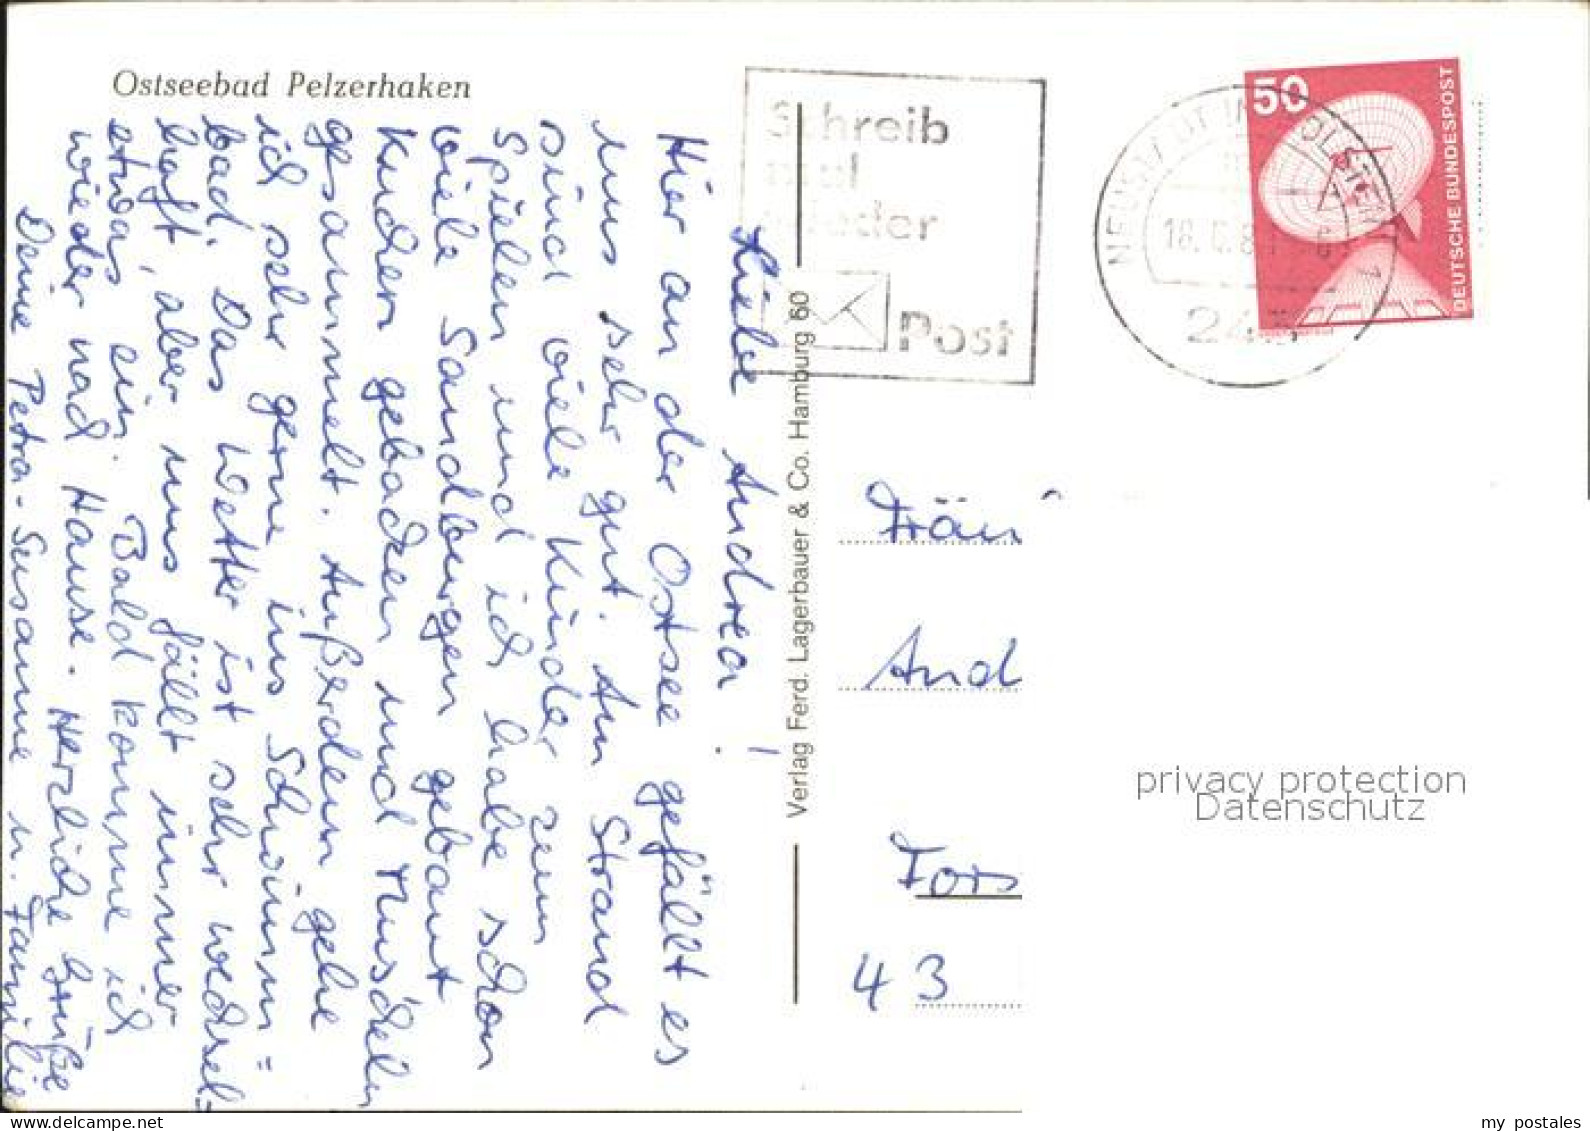 Ostseebad Pelzerhaken
Liebe Andrea!
Hier an der Ostsee gefällt es
uns sehr gut. Am Strand
sind viele Kinder zum
Spielen und ich habe schon
viele Sandburgen gebaut
Kuchen gebacken und Muscheln
gesammelt. Außerdem gehe
ich sehr gerne ins Schwimm=
bad. Das Wetter ist sehr wechsel=
haft, aber uns fällt immer
etwas ein. Bald komme ich
wieder nach Hause. Herzliche Grüße
Deine Petra-Susanne u. Familie
Verlag Ferd. Lagerbauer & Co. Hamburg 60
Schreib
mal
wieder
Post
NEUSTADT IN HOLSTEIN 1
18.6.8
24
50
DEUTSCHE BUNDESPOST
Fräu
And
Fors
43
privacy protection
Datenschutz
my postales